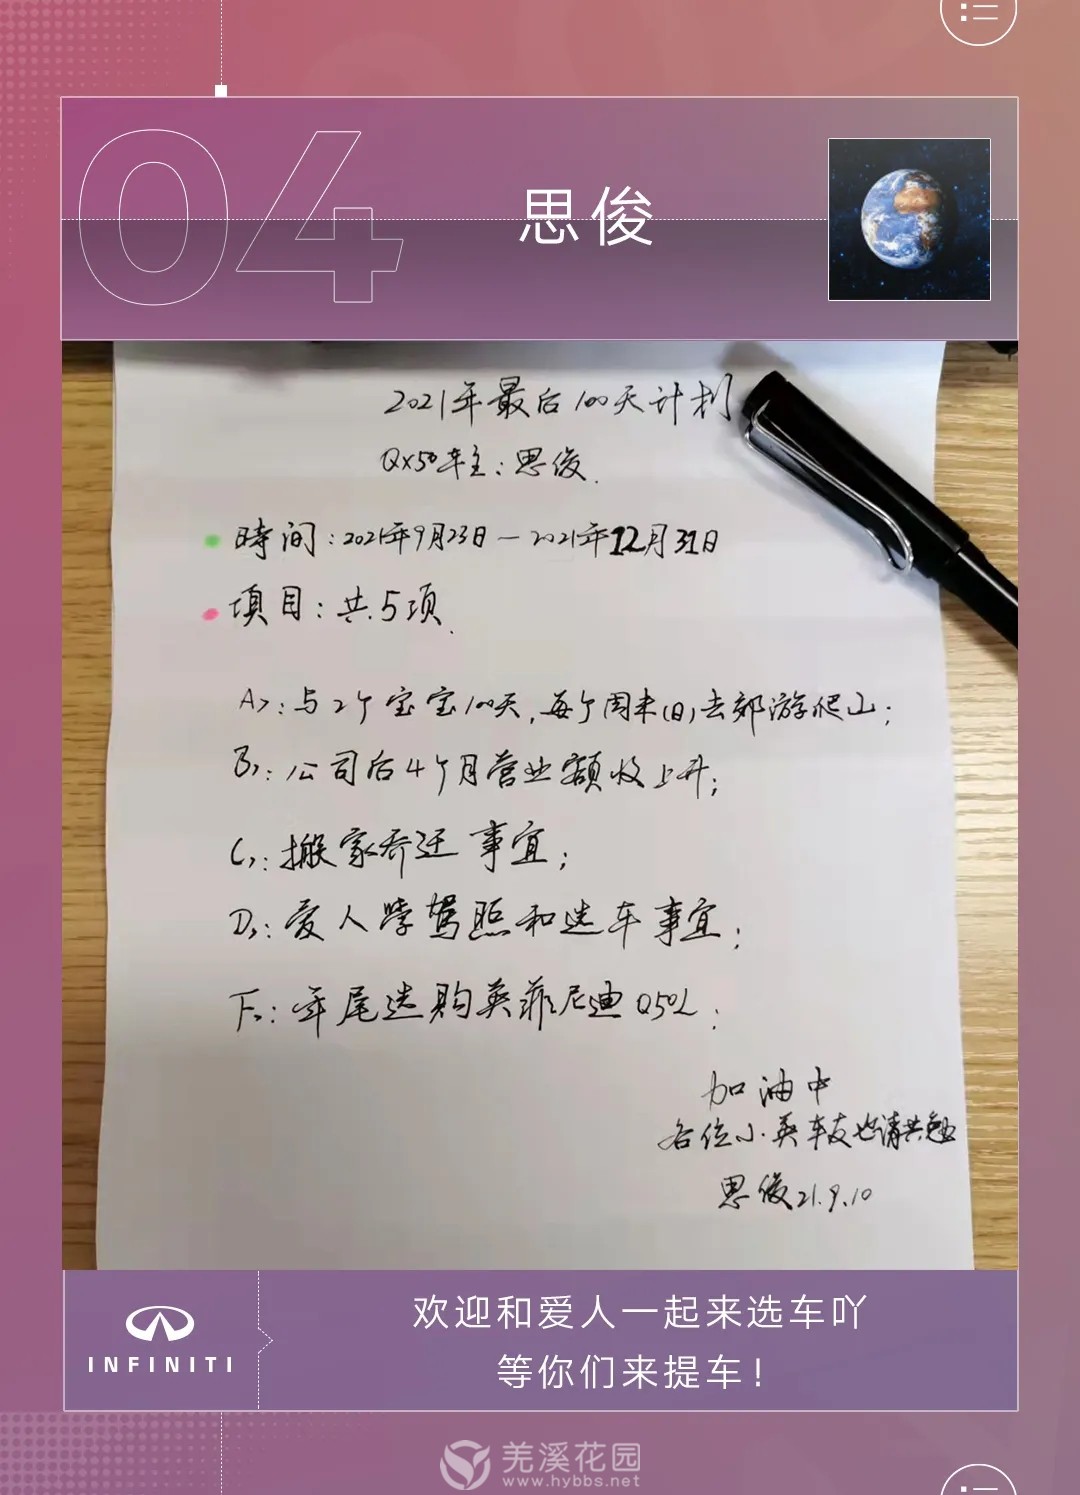 04
思俊
2021年最后100天计划
QX50车主：思俊.
時间：2021年9月23日—2021年12月31日
填目：共5项.
A>：与2个宝宝100天，每个周末(日)去郊游爬山；
B>：公司后4个月营业额收上升；
C>：搬家乔迁事宜；
D>：爱人学驾照和选车事宜；
F>：年尾选购英菲尼迪Q50L；
加油中
各位小英车友也请共勉
思俊21.9.10
INFINITI
欢迎和爱人一起来选车吖
等你们来提车！
羌溪花园
www.hybbs.net